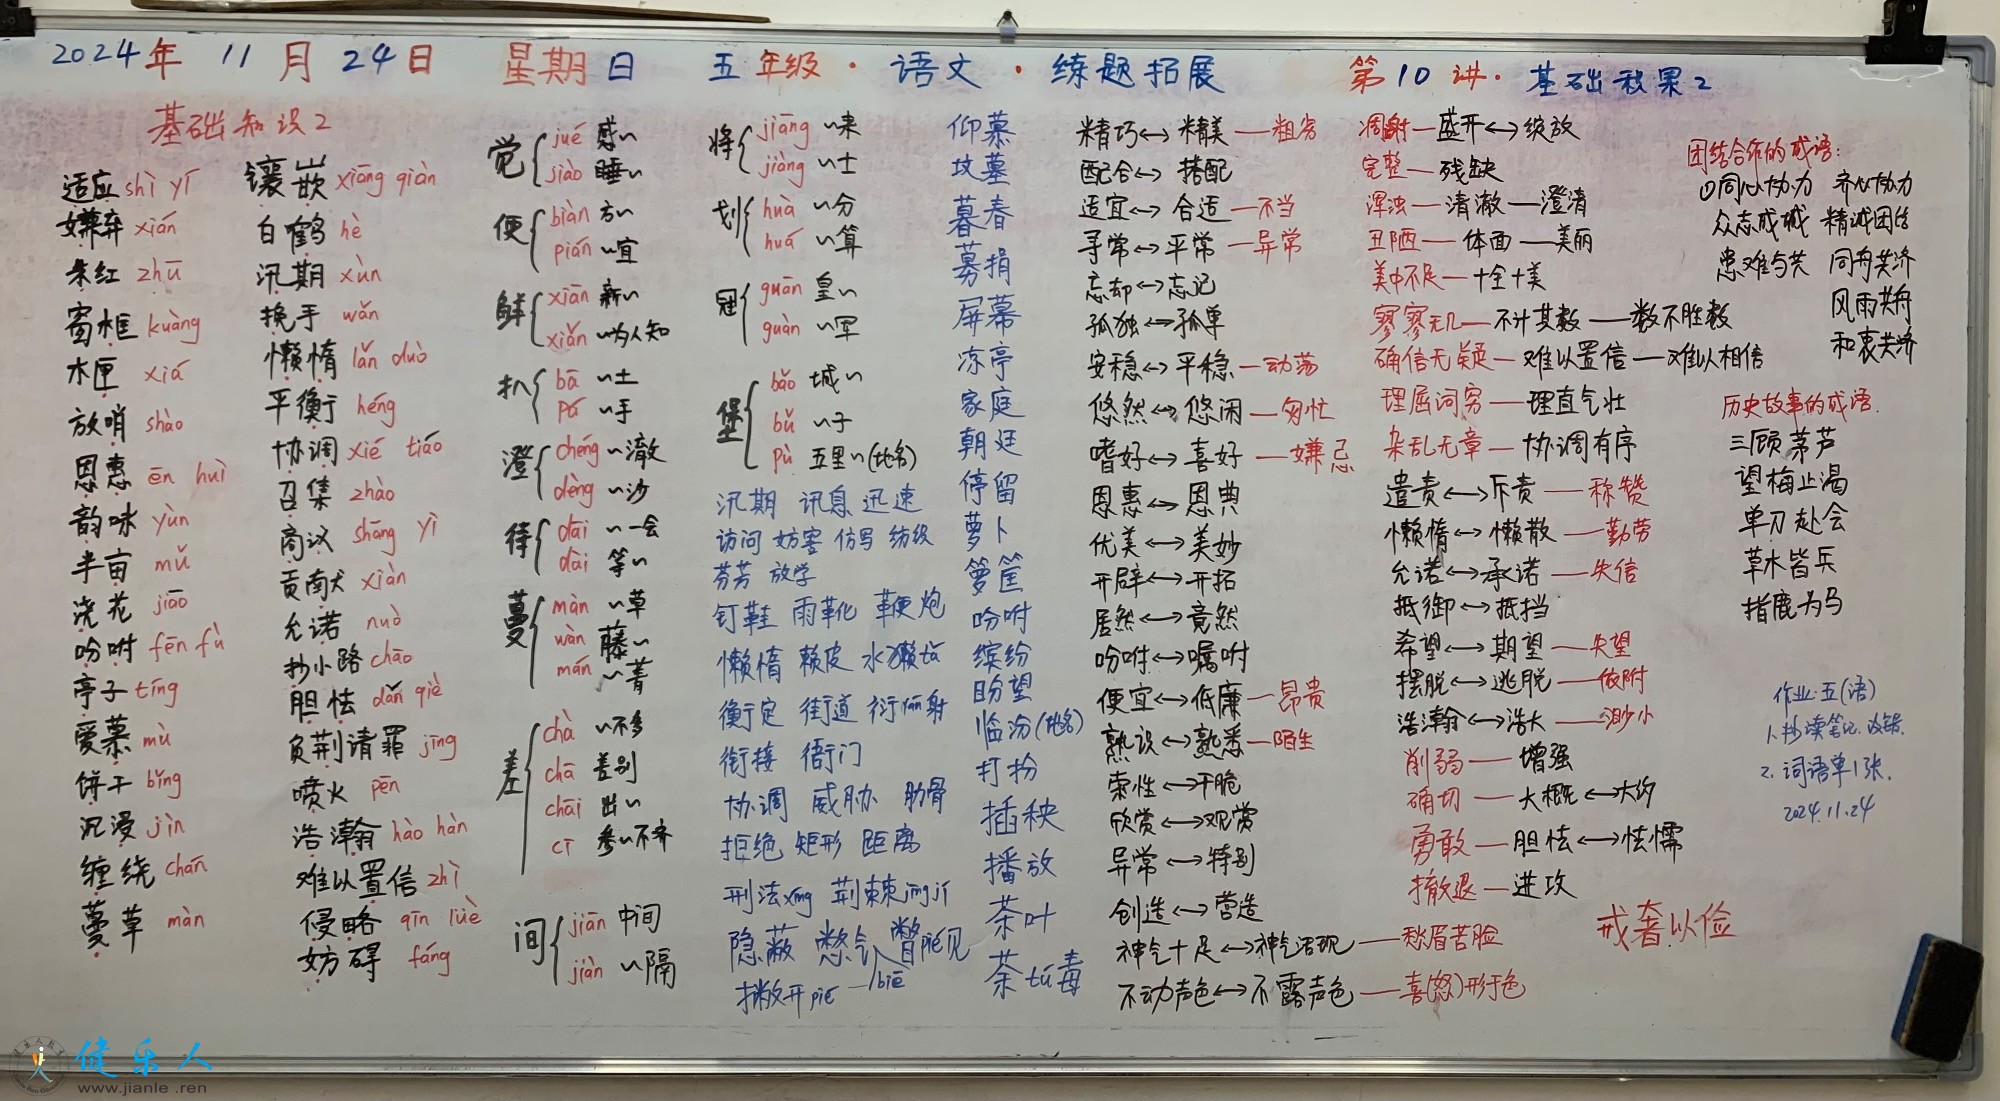 2024年 11月 24日 星期日 五年级·语文·练题拓展 第10讲·基础积累2
基础知识2
适应 shì yí
嫌弃 xián
朱红 zhū
窗框 kuàng
木匣 xiá
放哨 shào
恩惠 ēn huì
韵味 yùn
半亩 mǔ
浇花 jiāo
吩咐 fēn fù
亭子 tíng
爱慕 mù
饼干 bǐng
沉浸 jìn
缠绕 chán
蔓草 màn
镶嵌 xiāng qiàn
白鹤 hè
汛期 xùn
挽手 wǎn
懒惰 lǎn duò
平衡 héng
协调 xié tiáo
召集 zhào
商议 shāng yì
贡献 xiàn
允诺 nuò
抄小路 chāo
胆怯 dǎn qiè
负荆请罪 jīng
喷火 pēn
浩瀚 hào hàn
难以置信 zhì
侵略 qīn lüè
妨碍 fáng
觉 jué 感~
jiào 睡~
便 biàn 方~
pián ~宜
鲜 xiān 新~
xiǎn ~为人知
扒 bā ~土
pá ~手
澄 chéng ~澈
dèng ~沙
待 dāi ~一会
dài 等~
蔓 màn ~草
wàn 藤~
mán ~菁
差 chà ~不多
chā 差别
chāi 出~
cī 参~不齐
间 jiān 中间
jiàn ~隔
将 jiāng ~来
jiàng ~士
划 huà ~分
huá ~算
冠 guān 皇~
guàn ~军
堡 bǎo 城~
bǔ ~子
pù 五里~(地名)
汛期 讯息 迅速
访问 妨害 仿写 纺织
芬芳 放学
钉鞋 雨靴 鞭炮
懒惰 赖皮 水獭tǎ
衡定 街道 衍 俯射
衔接 衙门
协调 威胁 肋骨
拒绝 矩形 距离
刑法xíng 荆棘jīng jí
隐蔽 憋气 瞥见
撇开piē biē
仰慕
坟墓
暮春
募捐
屏幕
凉亭
家庭
朝廷
停留
萝卜
箩筐
吩咐
缤纷
盼望
临汾(地名)
打扮
插秧
播放
茶叶
荼tú毒
精巧↔精美—粗劣
配合↔搭配
适宜↔合适—不当
寻常↔平常—异常
忘却↔忘记
孤独↔孤单
安稳↔平稳—动荡
悠然↔悠闲—匆忙
嗜好↔喜好—嫌忌
恩惠↔恩典
优美↔美妙
开辟↔开拓
居然↔竟然
吩咐↔嘱咐
便宜↔低廉—昂贵
熟识↔熟悉—陌生
索性↔干脆
欣赏↔观赏
异常↔特别
创造↔营造
神气十足↔神气活现—愁眉苦脸
不动声色↔不露声色—喜(怒)形于色
凋谢—盛开↔绽放
完整—残缺
浑浊—清澈—澄清
丑陋—体面—美丽
美中不足—十全十美
寥寥无几—不计其数—数不胜数
确信无疑—难以置信—难以相信
理屈词穷—理直气壮
杂乱无章—协调有序
谴责↔斥责—称赞
懒惰↔懒散—勤劳
允诺↔承诺—失信
抵御↔抵挡
希望↔期望—失望
摆脱↔逃脱—依附
浩瀚↔浩大—渺小
削弱—增强
确切—大概↔大约
勇敢—胆怯↔怯懦
撤退—进攻
戒奢以俭
团结合作的成语:
①同心协力 齐心协力
众志成城 精诚团结
患难与共 同舟共济
风雨共舟
和衷共济
历史故事的成语.
三顾茅芦
望梅止渴
单刀赴会
草木皆兵
指鹿为马
作业:五(语)
1.抄读笔记.改错.
2.词语单1张.
2024.11.24
健乐人
www.jianle.ren